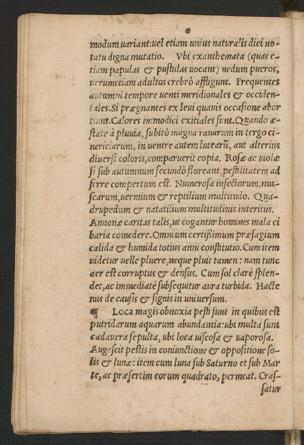 6
modum uariant: uel etiam unius naturalis diei no-
tatu digna mutatio. Vbi exanthemata (quas e-
tiam papulas & pustulas uocant) nedum pueros,
uerumetiam adultos crebrò affligunt. Frequentes
autumni tempore uenti meridionales & occiden-
tales. Si prægnantes ex leui quauis occasione abor
tiunt. Calores immodici exitiales sunt. Quando æ-
state à pluuia, subitò magna ranarum in tergo ci-
nericiarum, in uentre autem lutearũ, aut alterius
diuersi coloris, comparuerit copia. Rosæ ac uiolæ
si sub autumnum secundò floreant. pestilitatem ad
ferre compertum est. Numerosa insectorum, mu-
scarum, uermium & reptilium multitudo. Qua-
drupedum & natatilium multitudinis interitus.
Annonæ caritas talis, ut cogantur homines mala ci
baria comedere. Omnium certissimum præsagium
calida & humida totius anni constitutio. Cum item
uidetur uelle pluere, neque pluit tamen: nam tunc
aer est corruptus & densus. Cum sol clarè splen-
det, ac immediatè subsequitur aura turbida. Hacte
nus de causis & signis in uniuersum.
¶ Loca magis obnoxia pesti sunt in quibus est
putridarum aquarum abundantia: ubi multa sunt
cadauera sepulta, ubi loca uiscosa & uaporosa.
Augescit pestis in coniunctione & oppositione so-
lis & lunæ: item cum luna sub Saturno et sub Mar
te, ac præsertim eorum quadrato, permeat. Cras-
satur